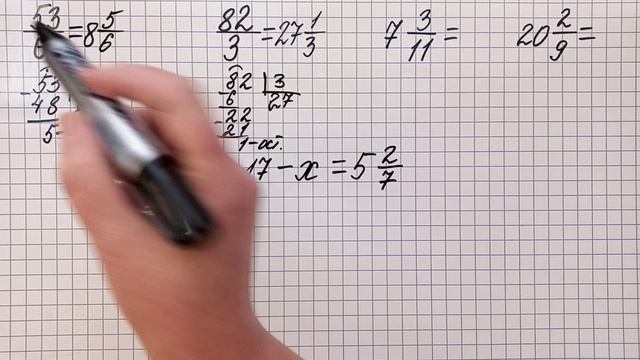 53/6 = 8 5/6
82/3 = 27 1/3
7 3/11 =
20 2/9 =
- 53
48
5
82 | 3
6 | 27
- 22
21
1 - ост.
17 - x = 5 2/7